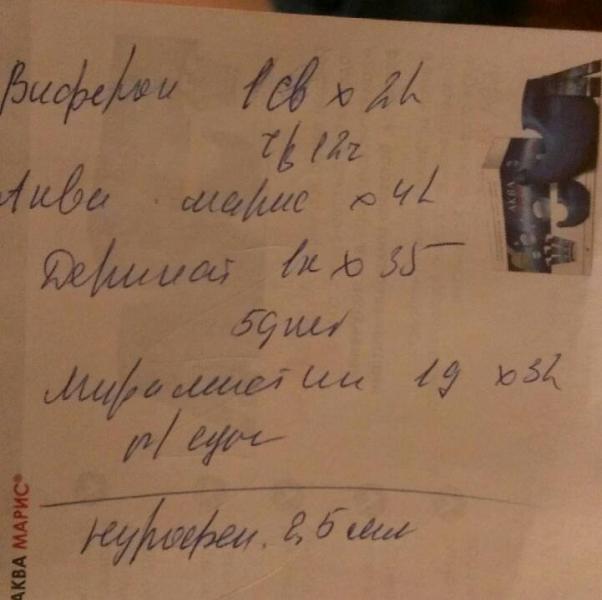 Виферон 1 св х 2р
ч/в 12ч
Аква марис х 4р
Деринат 1к х 3-5
5 дней
Мирамистин 1д х 3р
п/ еды
Нурофен. 2,5 мл
АКВА МАРИС®
АКВА